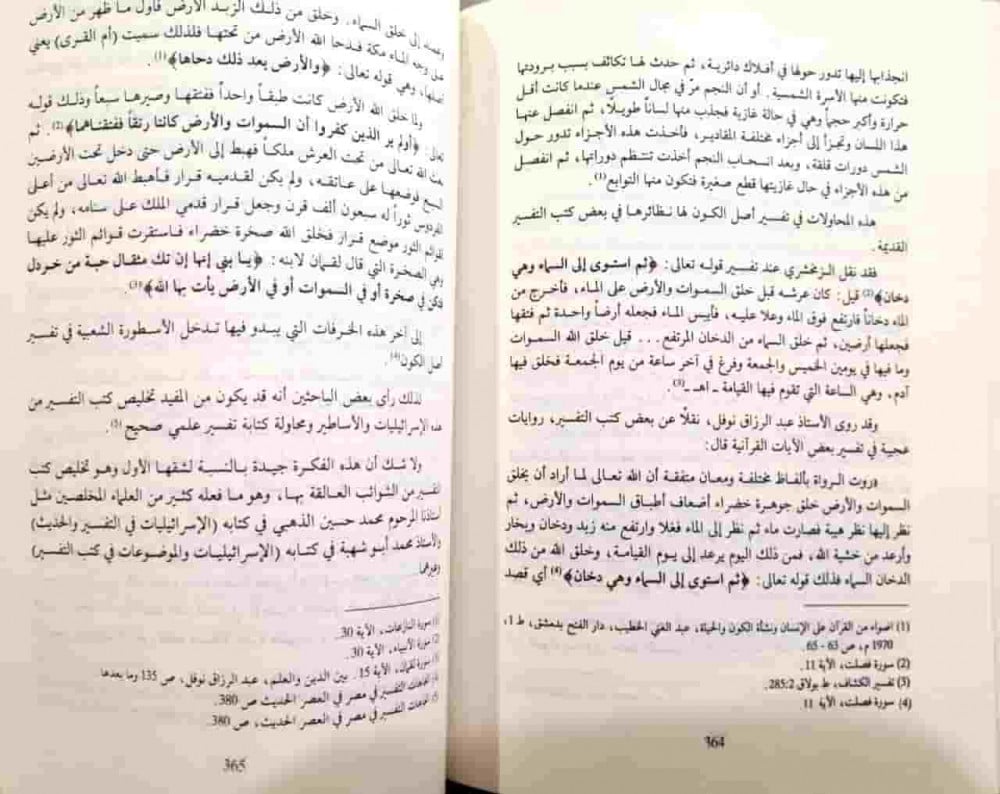 انجذابها إليها تدور حولها في أفلاك دائرية، ثم حدث لها تكاثف بسبب برودتها
فتكونت منها الأسرة الشمسية. أو أن النجم مرّ في مجال الشمس عندما كانت أقل
حرارة وأكبر حجماً وهي في حالة غازية فجذب منها لساناً طويلاً، ثم انفصل عنها
هذا اللسان وتجزأ إلى أجزاء مختلفة المقادير، فأخذت هذه الأجزاء تدور حول
الشمس دورات قلقة، وبعد انسحاب النجم أخذت تنتظم دوراتها، ثم انفصل
من هذه الأجزاء في حال غازيتها قطع صغيرة فتكون منها التوابع(1).
هذه المحاولات في تفسير أصل الكون لها نظائرها في بعض كتب التفسير
القديمة.
فقد نقل الزمخشري عند تفسير قوله تعالى: ﴿ثم استوى إلى السماء وهي
دخان﴾(2) قيل: كان عرشه قبل خلق السموات والأرض على الماء، فأخرج من
الماء دخاناً فارتفع فوق الماء وعلا عليه، فأيبس الماء فجعله أرضاً واحدة ثم فتقها
فجعلها أرضين، ثم خلق السماء من الدخان المرتفع... قيل خلق الله السموات
وما فيها في يومين الخميس والجمعة وفرغ في آخر ساعة من يوم الجمعة فخلق فيها
آدم، وهي الساعة التي تقوم فيها القيامة ـ اهـ ـ(3).
وقد روى الأستاذ عبد الرزاق نوفل، نقلاً عن بعض كتب التفسير، روايات
عجيبة في تفسير بعض الآيات القرآنية قال:
«روت الرواة بألفاظ مختلفة ومعان متفقة أن الله تعالى لما أراد أن يخلق
السموات والأرض خلق جوهرة خضراء أضعاف أطباق السموات والأرض، ثم
نظر إليها نظر هيبة فصارت ماء ثم نظر إلى الماء فغلا وارتفع منه زبد ودخان وبخار
وأرعد من خشية الله، فمن ذلك اليوم يرعد إلى يوم القيامة، وخلق الله من ذلك
الدخان السماء فذلك قوله تعالى: ﴿ثم استوى إلى السماء وهي دخان﴾(4) أي قصد
(1) اضواء من القرآن على الإنسان ونشأة الكون والحياة، عبد الغني الخطيب، دار الفتح بدمشق، ط 1،
1970 م، ص 63 - 65.
(2) سورة فصلت، الآية 11.
(3) تفسير الكشاف، ط بولاق 285:2.
(4) سورة فصلت، الآية 11.
364
وعمد إلى خلق السماء. وخلق من ذلك الزبد الأرض فأول ما ظهر من الأرض
على وجه الماء مكة فدحا الله الأرض من تحتها فلذلك سميت (أم القرى) يعني
أصلها، وهي قوله تعالى: ﴿والأرض بعد ذلك دحاها﴾(1).
ولما خلق الله الأرض كانت طبقاً واحداً ففتقها وصيرها سبعاً وذلك قوله
تعالى: ﴿أولم ير الذين كفروا أن السموات والأرض كانتا رتقاً ففتقناهما﴾(2) ثم
بعث الله تعالى من تحت العرش ملكاً فهبط إلى الأرض حتى دخل تحت الأرضين
السبع فوضعها على عاتقه، ولم يكن لقدميه قرار فأهبط الله تعالى من أعلى
الفردوس ثوراً له سبعون ألف قرن وجعل قرار قدمي الملك على سنامه، ولم يكن
لقوائم الثور موضع قرار فخلق الله صخرة خضراء فاستقرت قوائم الثور عليها
وهي الصخرة التي قال لقمان لابنه: ﴿يا بني إنها إن تك مثقال حبة من خردل
فتكن في صخرة أو في السموات أو في الأرض يأت بها الله﴾(3).
إلى آخر هذه الخرفات التي يبدو فيها تدخل الأسطورة الشعبية في تفسير
أصل الكون(4).
لذلك رأى بعض الباحثين أنه قد يكون من المفيد تخليص كتب التفسير من
هذه الإسرائيليات والأساطير ومحاولة كتابة تفسير علمي صحيح(5).
ولا شك أن هذه الفكرة جيدة بالنسبة لشقها الأول وهو تخليص كتب
التفسير من الشوائب العالقة بها، وهو ما فعله كثير من العلماء المخلصين مثل
أستاذنا المرحوم محمد حسين الذهبي في كتابه (الإسرائيليات في التفسير والحديث)
والأستاذ محمد أبو شهبة في كتابه (الإسرائيليات والموضوعات في كتب التفسير)
وغيرهما.
(1) سورة النازعات، الآية 30.
(2) سورة الأنبياء، الآية 30.
(3) سورة لقمان، الآية 15. بين الدين والعلم، عبد الرزاق نوفل، ص 135 وما بعدها
(4) اتجاهات التفسير في مصر في العصر الحديث ص 380.
(5) اتجاهات التفسير في مصر في العصر الحديث، ص 380.
365